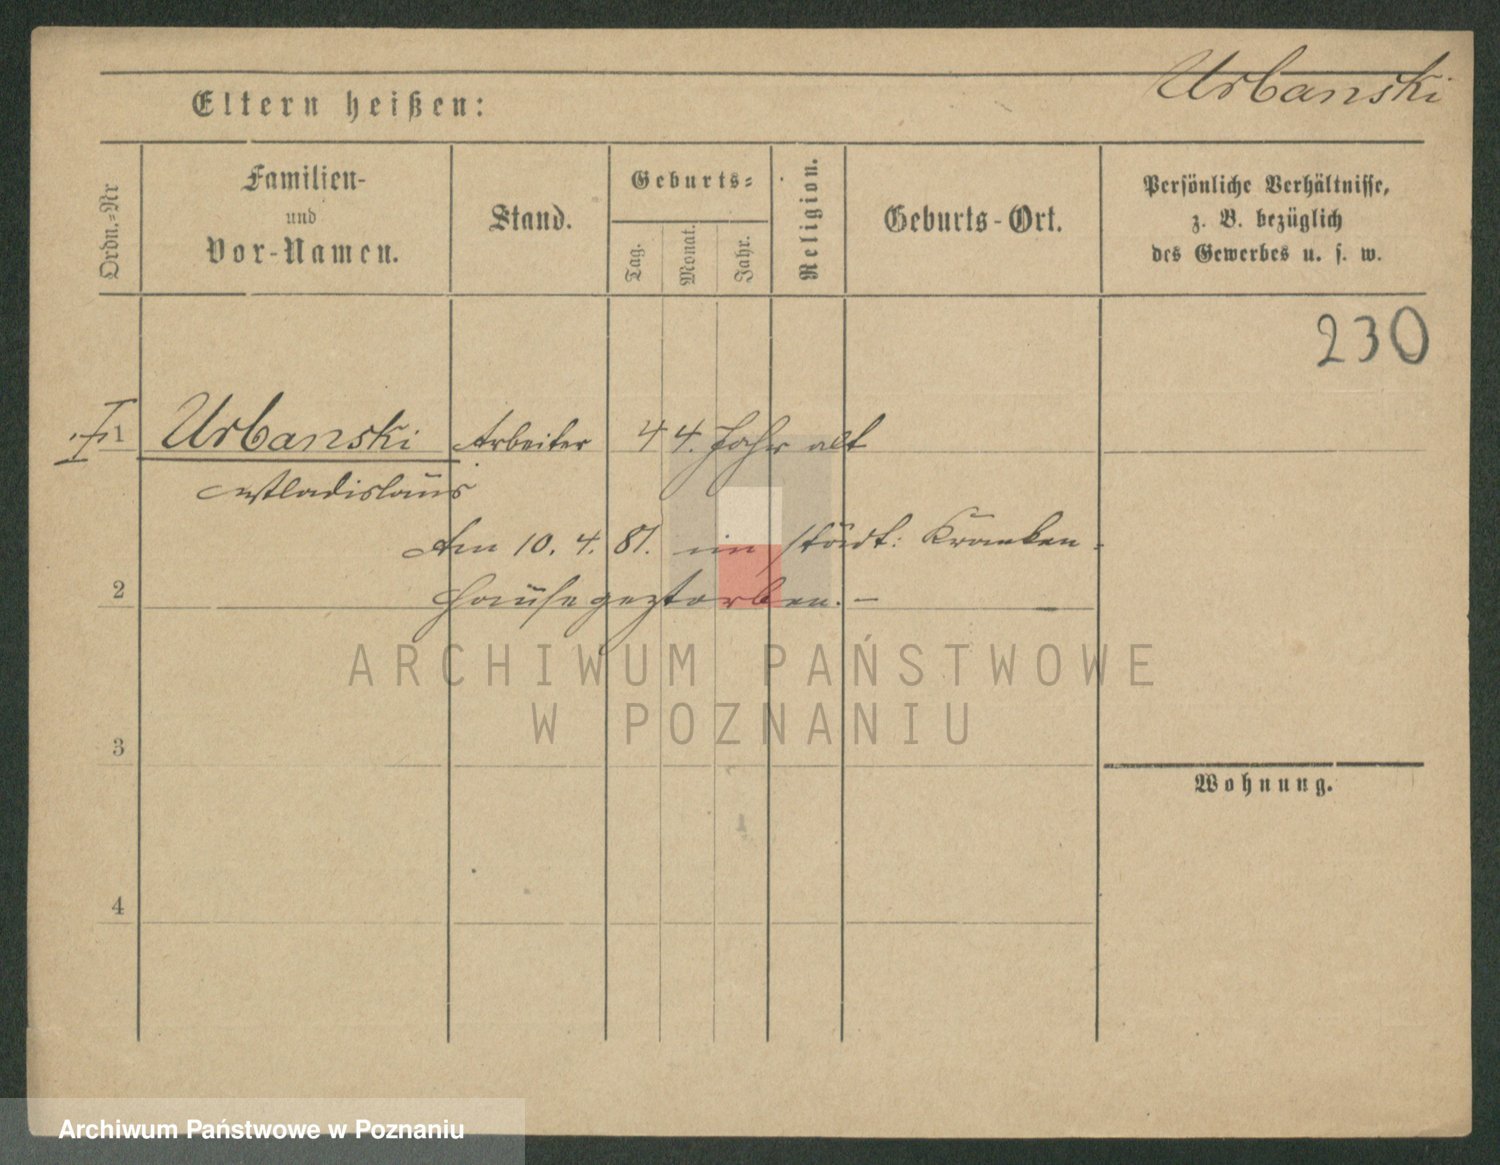 Urbanski
Eltern heißen:
Ordn.-Nr
Familien-
und
Vor-Namen.
Stand.
Geburts-
Tag.
Monat.
Jahr.
Religion.
Geburts-Ort.
Persönliche Verhältnisse,
z. B. bezüglich
des Gewerbes u. s. w.
230
1 Urbanski Arbeiter 44. Jahr alt
Wladislaus
Am 10. 4. 81. im städt: Kranken-
hause gestorben. —
2
ARCHIWUM PAŃSTWOWE
W POZNANIU
3
Wohnung.
4
Archiwum Państwowe w Poznaniu